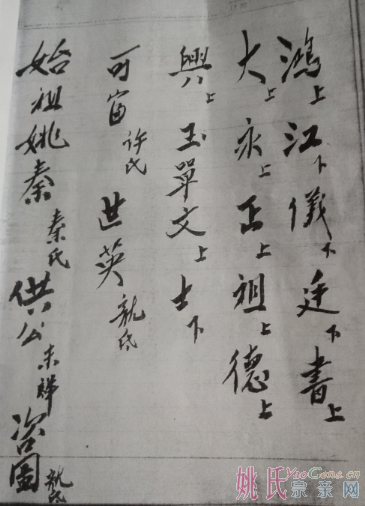 鴻上江下儀下廷下書上
大上永上正上祖上德上
興上玉單文上士下
可富许氏世英龍氏
始祖姚秦秦氏供公未詳 龍氏
姚氏宗亲网
YaoGens.cn